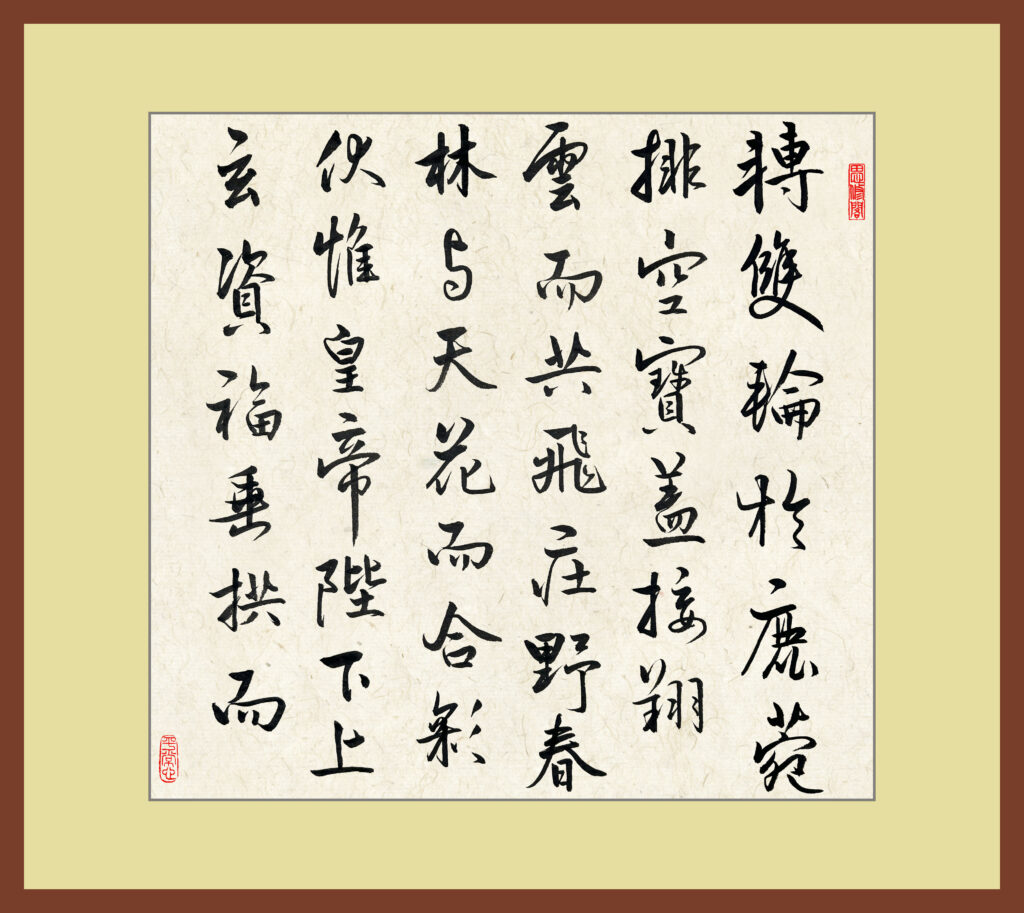 思修閣
轉雙輪於鹿菀
排空寶盖接翔
雲而共飛庄野春
林与天花而合彩
伏惟皇帝陛下上
玄資福垂拱而
平常心